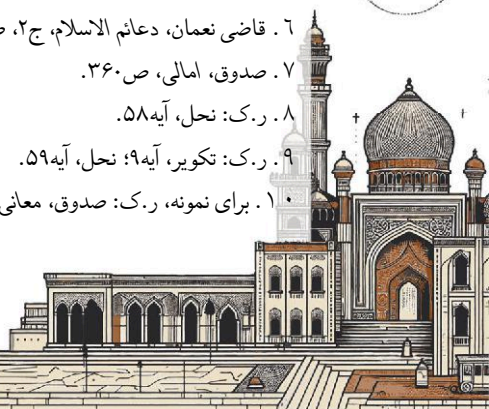 ۶. قاضی نعمان، دعائم الاسلام، ج۲،
۷. صدوق، امالی، ص۳۶۰.
۸. ر.ک: نحل، آیه۵۸.
۹. ر.ک: تکویر، آیه۹؛ نحل، آیه۵۹.
۱۰. برای نمونه، ر.ک: صدوق، معانی